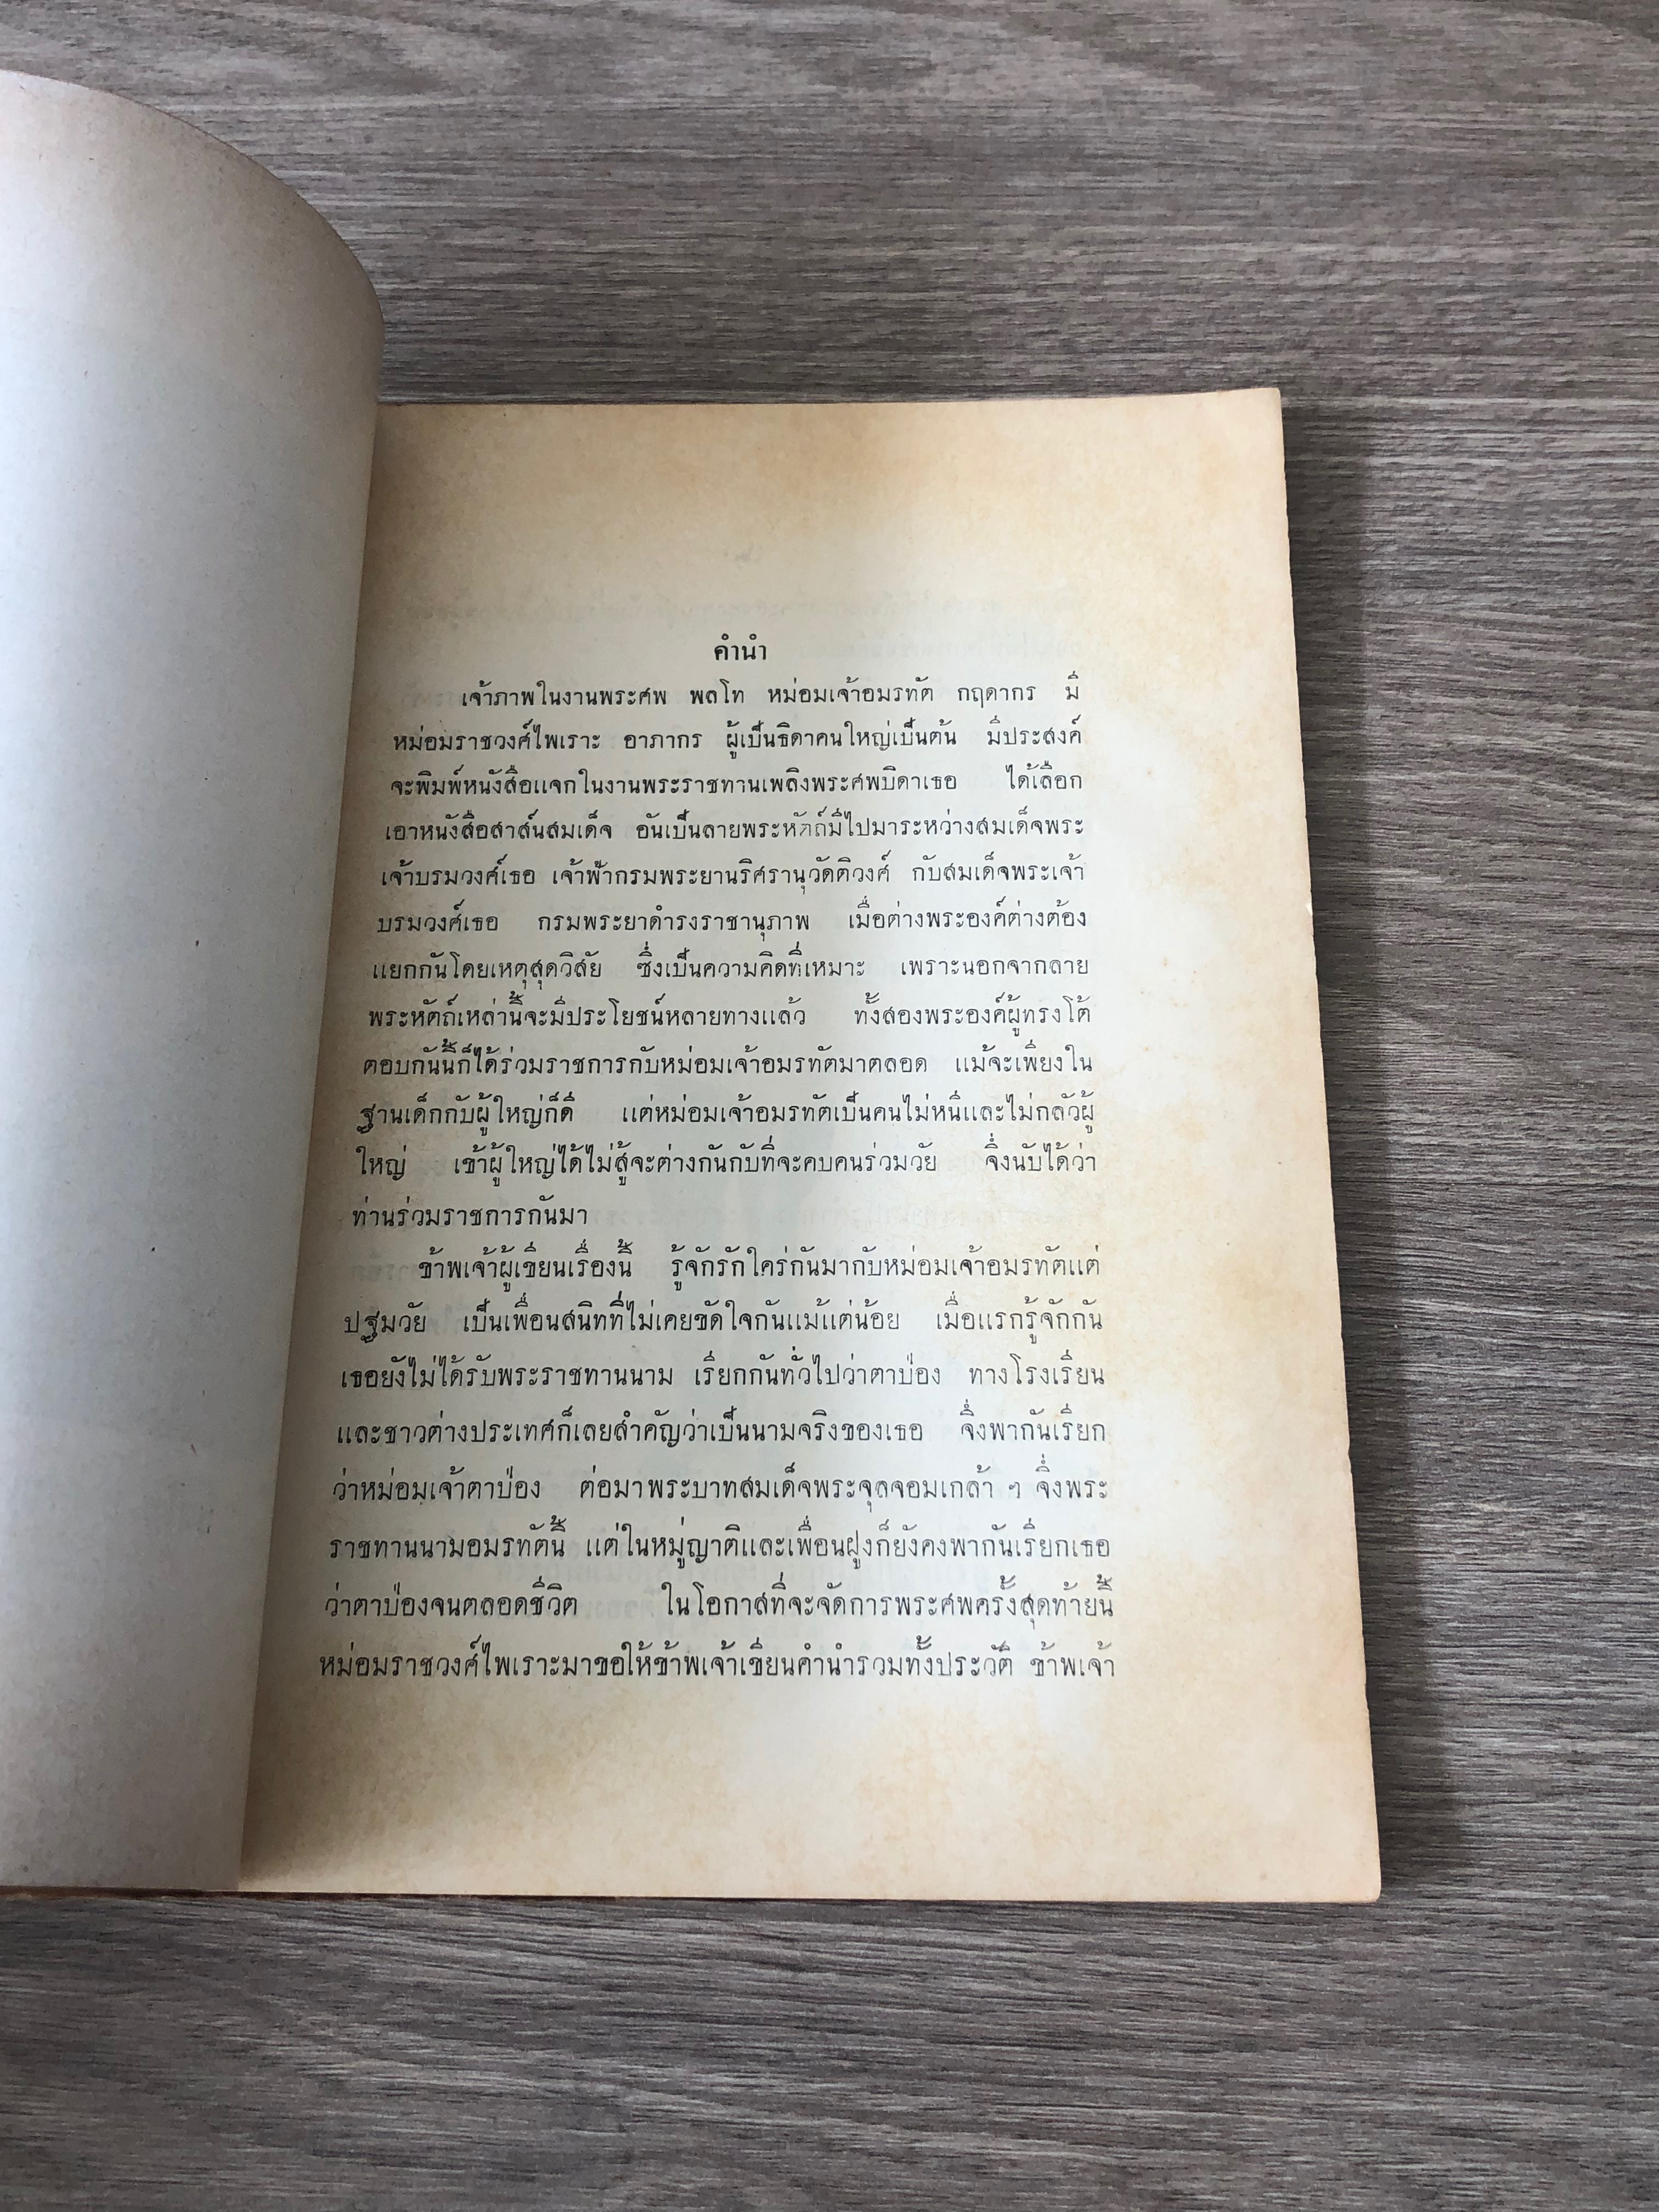 คำนำ
เจ้าภาพในงานพระศพ พลโท หม่อมเจ้าอมรทัต กฤดากร มี
หม่อมราชวงศ์ไพเราะ อาภากร ผู้เป็นธิดาคนใหญ่เป็นต้น มีประสงค์
จะพิมพ์หนังสือแจกในงานพระราชทานเพลิงพระศพบิดาเธอ ได้เลือก
เอาหนังสือสาส์นสมเด็จ อันเป็นลายพระหัตถ์มีไปมาระหว่างสมเด็จพระ
เจ้าบรมวงศ์เธอ เจ้าฟ้ากรมพระยานริศรานุวัดติวงศ์ กับสมเด็จพระเจ้า
บรมวงศ์เธอ กรมพระยาดำรงราชานุภาพ เมื่อต่างพระองค์ต่างต้อง
แยกกันโดยเหตุสุดวิสัย ซึ่งเป็นความคิดที่เหมาะ เพราะนอกจากลาย
พระหัตถ์เหล่านี้จะมีประโยชน์หลายทางแล้ว ทั้งสองพระองค์ผู้ทรงโต้
ตอบกันนี้ก็ได้ร่วมราชการกับหม่อมเจ้าอมรทัตมาตลอด แม้จะเพียงใน
ฐานเด็กกับผู้ใหญ่ก็ดี แต่หม่อมเจ้าอมรทัตเป็นคนไม่หนีและไม่กลัวผู้
ใหญ่ เข้าผู้ใหญ่ได้ไม่สู้จะต่างกันกับที่จะคบคนร่วมวัย จึ่งนับได้ว่า
ท่านร่วมราชการกันมา
ข้าพเจ้าผู้เขียนเรื่องนี้ รู้จักรักใคร่กันมากับหม่อมเจ้าอมรทัตแต่
ปฐมวัย เป็นเพื่อนสนิทที่ไม่เคยขัดใจกันแม้แต่น้อย เมื่อแรกรู้จักกัน
เธอยังไม่ได้รับพระราชทานนาม เรียกกันทั่วไปว่าตาป๋อง ทางโรงเรียน
และชาวต่างประเทศก็เลยสำคัญว่าเป็นนามจริงของเธอ จึ่งพากันเรียก
ว่าหม่อมเจ้าตาป๋อง ต่อมาพระบาทสมเด็จพระจุลจอมเกล้า ฯ จึ่งพระ
ราชทานนามอมรทัตนี้ แต่ในหมู่ญาติและเพื่อนฝูงก็ยังคงพากันเรียกเธอ
ว่าตาป๋องจนตลอดชีวิต ในโอกาสที่จะจัดการพระศพครั้งสุดท้ายนี้
หม่อมราชวงศ์ไพเราะมาขอให้ข้าพเจ้าเขียนคำนำรวมทั้งประวัติ ข้าพเจ้า